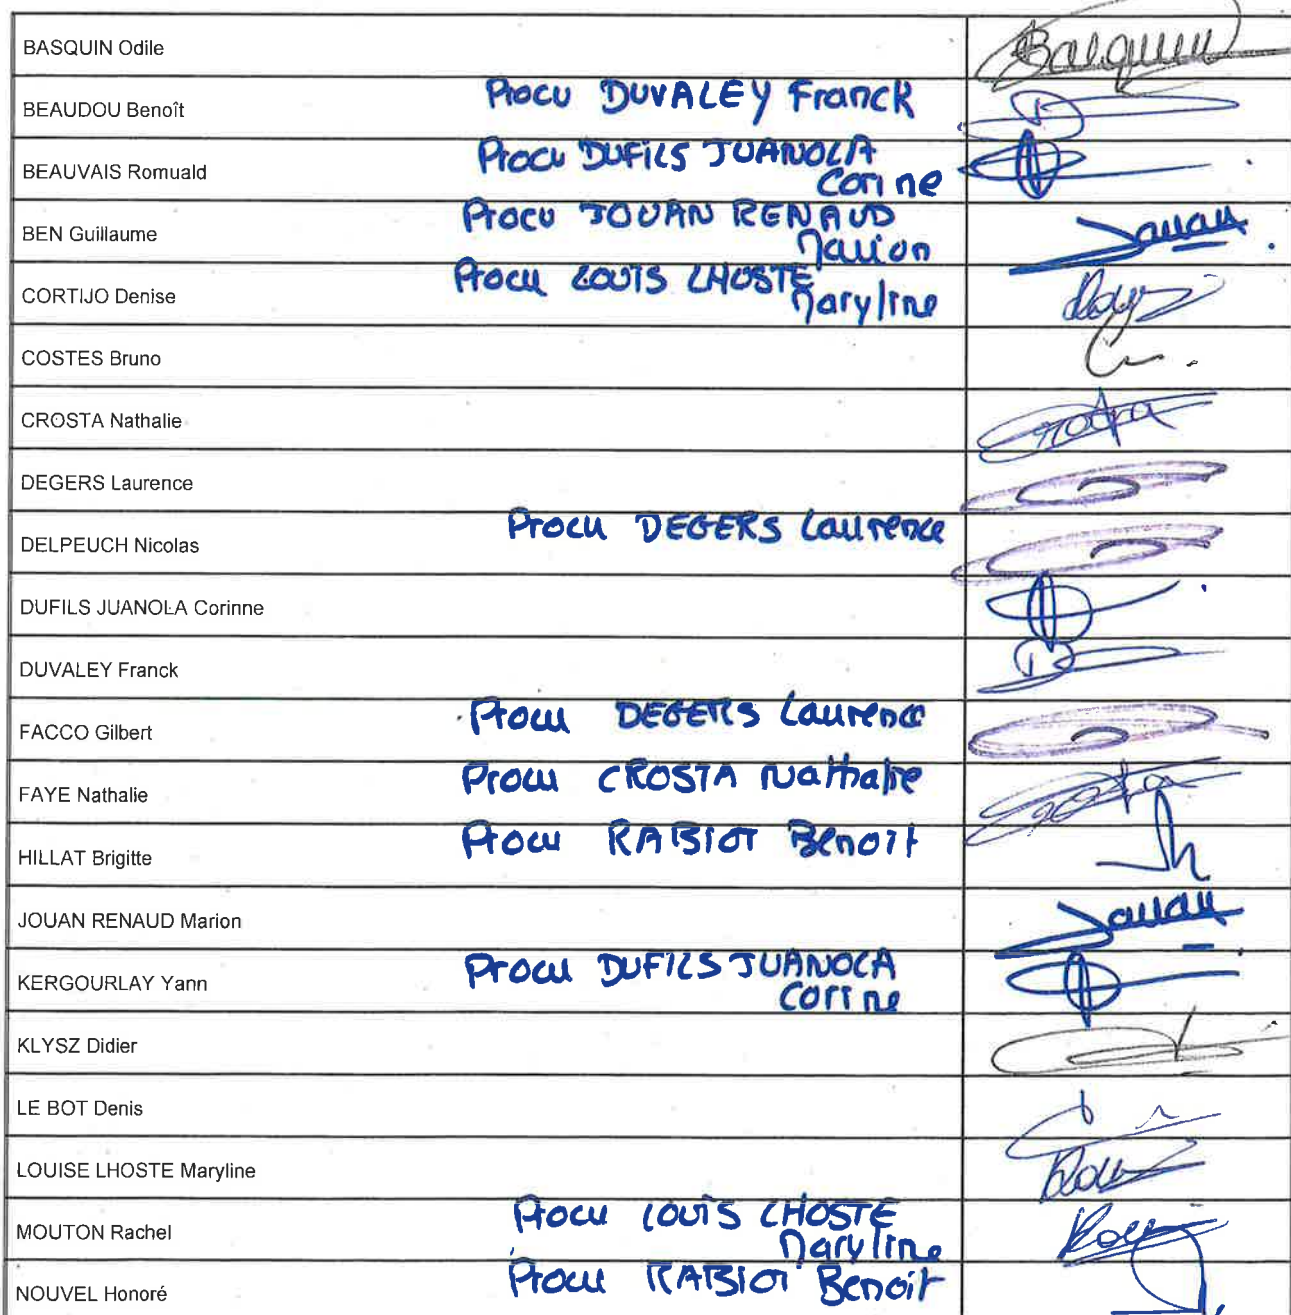 BASQUIN Odile
Basquin
BEAUDOU Benoît
Procu DUVALEY Franck
BEAUVAIS Romuald
Procu DUFILS JUANOLA
Corine
BEN Guillaume
Procu JOUAN RENAUD
Marion
Jouan
CORTIJO Denise
Procu LOUIS LHOSTE
Maryline
COSTES Bruno
CROSTA Nathalie
Crosta
DEGERS Laurence
DELPEUCH Nicolas
Procu DEGERS Laurence
DUFILS JUANOLA Corinne
DUVALEY Franck
FACCO Gilbert
Procu DEGERS Laurence
FAYE Nathalie
Procu CROSTA Nathalie
Crosta
HILLAT Brigitte
Procu RABIOT Benoit
JOUAN RENAUD Marion
Jouan
KERGOURLAY Yann
Procu DUFILS JUANOLA
Corine
KLYSZ Didier
LE BOT Denis
LOUISE LHOSTE Maryline
MOUTON Rachel
Procu LOUIS LHOSTE
Maryline
NOUVEL Honoré
Procu RABIOT Benoit